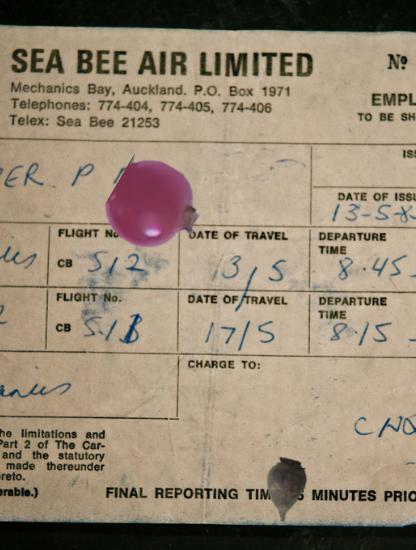 SEA BEE AIR LIMITED
Nº
Mechanics Bay, Auckland. P.O. Box 1971
Telephones: 774-404, 774-405, 774-406
Telex: Sea Bee 21253
EMPL
TO BE SH
ER P
ISS
DATE OF ISSU
13-5-8
FLIGHT No
DATE OF TRAVEL
DEPARTURE TIME
CB 512
13/5
8.45
FLIGHT No.
DATE OF TRAVEL
DEPARTURE TIME
CB
17/5
8.15
CHARGE TO:
he limitations and
Part 2 of The Car-
and the statutory
made thereunder
reto.
erable.)
FINAL REPORTING TIM 5 MINUTES PRIO